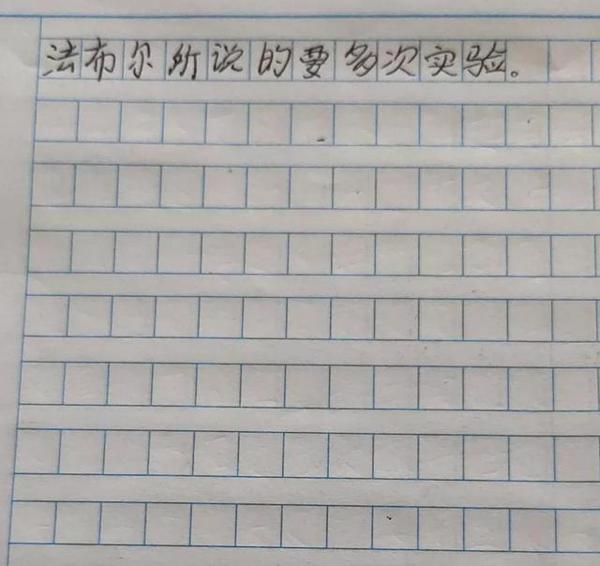 法布尔所说的要多次实验。